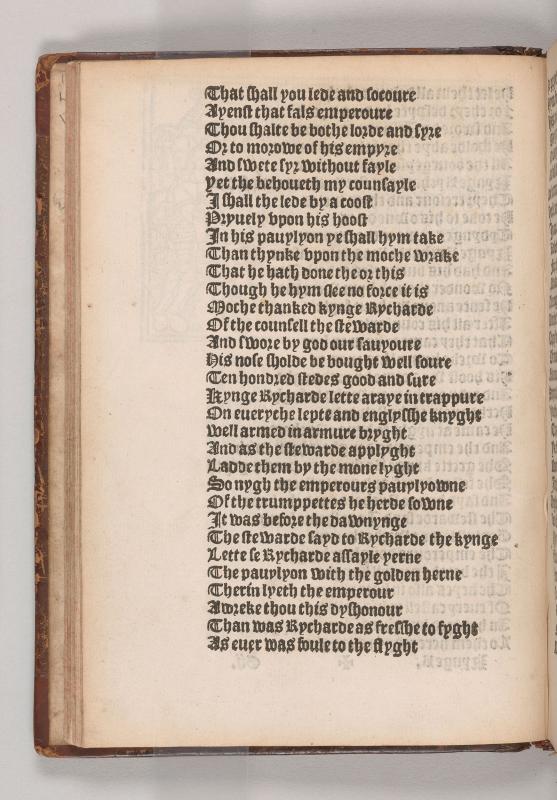 That shall you lede and socoure
Ayenst that fals emperoure
Thou shalte be bothe lorde and syre
Or to morowe of his empyre
And swete syr without fayle
yet the behoueth my counsayle
I shall the lede by a coost
Pryuely vpon his hoost
In his pauylyon ye shall hym take
Than thynke vpon the moche wrake
That he hath done the or this
Though he hym slee no force it is
Moche thanked kynge Rycharde
Of the counsell the stewarde
And swore by god our sauyoure
His nose sholde be bought well soure
Ten hondred stedes good and sure
Kynge Rycharde lette araye in trappure
On euerythe lepte and englysshe knyght
well armed in armure bryght
And as the stewarde applyght
Ladde them by the mone lyght
So nygh the emperours pauylyowne
Of the trumppettes he herde sowne
It was before the dawnynge
The stewarde sayd to Rycharde the kynge
Lette se Rycharde assayle yerne
The pauylyon with the golden herne
Therin lyeth the emperour
Awreke thou this dyshonour
Than was Rycharde as fresshe to fyght
As euer was foule to the flyght